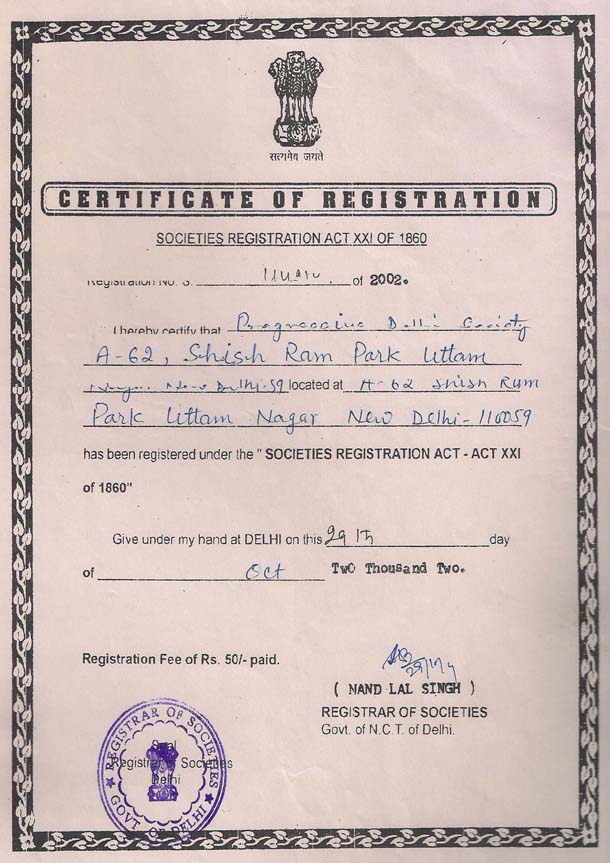 सत्यमेव जयते
CERTIFICATE OF REGISTRATION
SOCIETIES REGISTRATION ACT XXI OF 1860
Registration No. S. of 2002.
I hereby certify that Progressive Delhi Society
A-62, Shish Ram Park Uttam
Nagar New Delhi-59 located at A-62 Shish Ram
Park Uttam Nagar New Delhi-110059
has been registered under the " SOCIETIES REGISTRATION ACT - ACT XXI
of 1860"
Give under my hand at DELHI on this 29th day
of Oct Two Thousand Two.
Registration Fee of Rs. 50/- paid.
( NAND LAL SINGH )
REGISTRAR OF SOCIETIES
Govt. of N.C.T. of Delhi.
REGISTRAR OF SOCIETIES
Seal
Registrar of Societies
Delhi
GOVT. OF DELHI